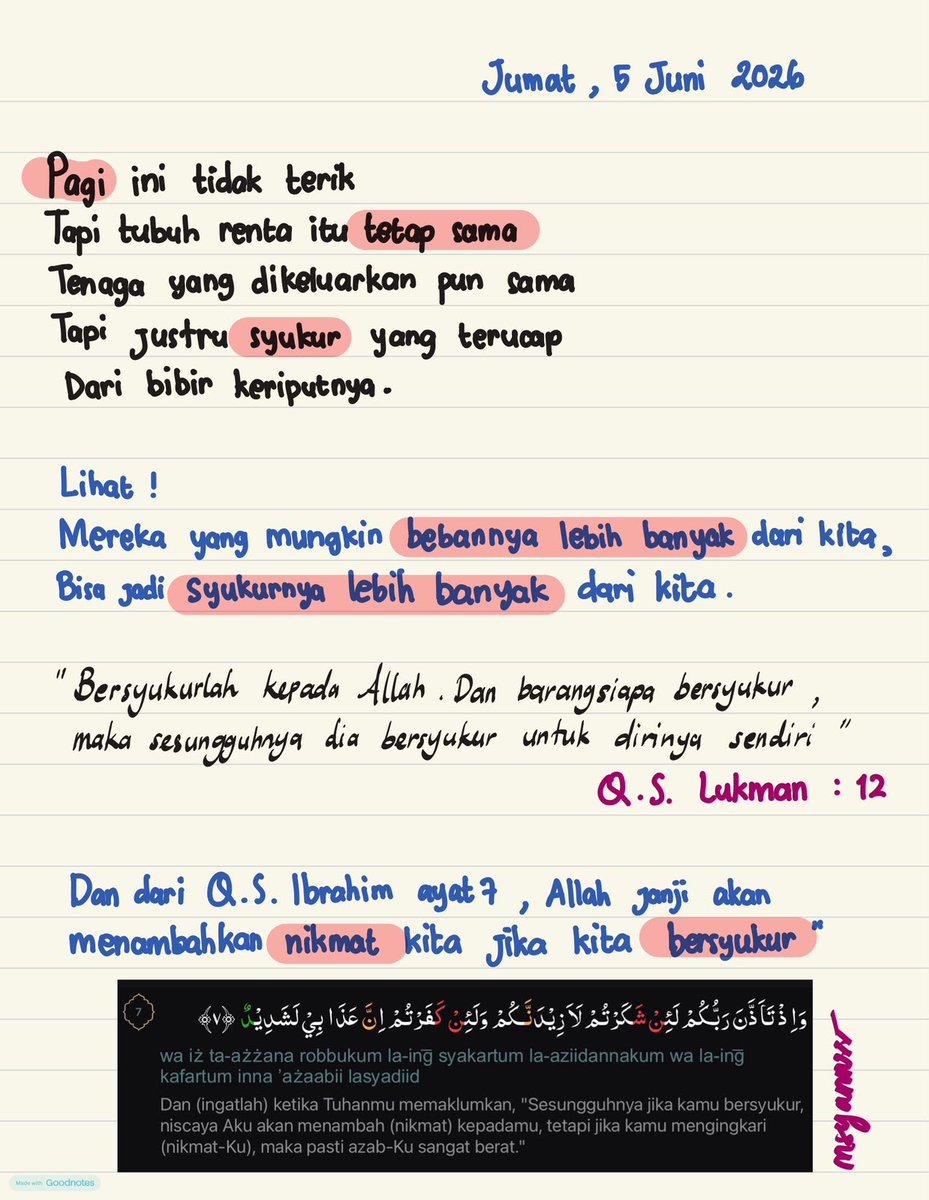 Jumat, 5 Juni 2026
Pagi ini tidak terik
Tapi tubuh renta itu tetap sama
Tenaga yang dikeluarkan pun sama
Tapi justru syukur yang terucap
Dari bibir keriputnya.
Lihat !
Mereka yang mungkin bebannya lebih banyak dari kita,
Bisa jadi syukurnya lebih banyak dari kita.
"Bersyukurlah kepada Allah. Dan barangsiapa bersyukur,
maka sesungguhnya dia bersyukur untuk dirinya sendiri"
Q.S. Lukman : 12
Dan dari Q.S. Ibrahim ayat 7, Allah janji akan
menambahkan nikmat kita jika kita bersyukur"
7
وَاِذْ تَاَذَّنَ رَبُّكُمْ لَئِنْ شَكَرْتُمْ لَاَزِيْدَنَّكُمْ وَلَئِنْ كَفَرْتُمْ اِنَّ عَذَابِيْ لَشَدِيْدٌ ﴿٧﴾
wa iż ta-ażżana robbukum la-ing̅ syakartum la-aziidannakum wa la-ing̅
kafartum inna 'ażaabii lasyadiid
Dan (ingatlah) ketika Tuhanmu memaklumkan, "Sesungguhnya jika kamu bersyukur,
niscaya Aku akan menambah (nikmat) kepadamu, tetapi jika kamu mengingkari
(nikmat-Ku), maka pasti azab-Ku sangat berat."
Made with Goodnotes